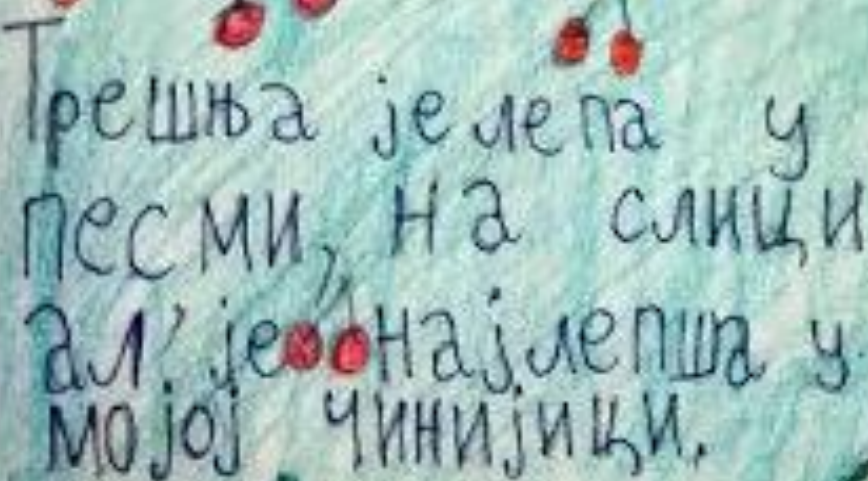 Трешња је лепа у
песми, на слици
ал' је најлепша у
мојој чинијици.